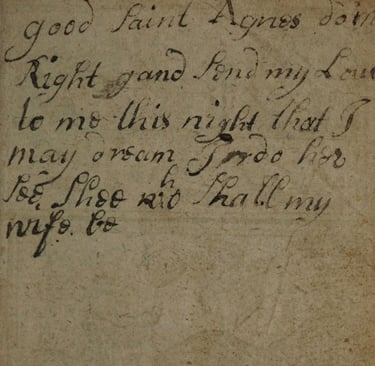 good saint Agnes do m
Right gand send my Lou
to me this night that I
may dream I do her
see, Shee who shall my
wife be